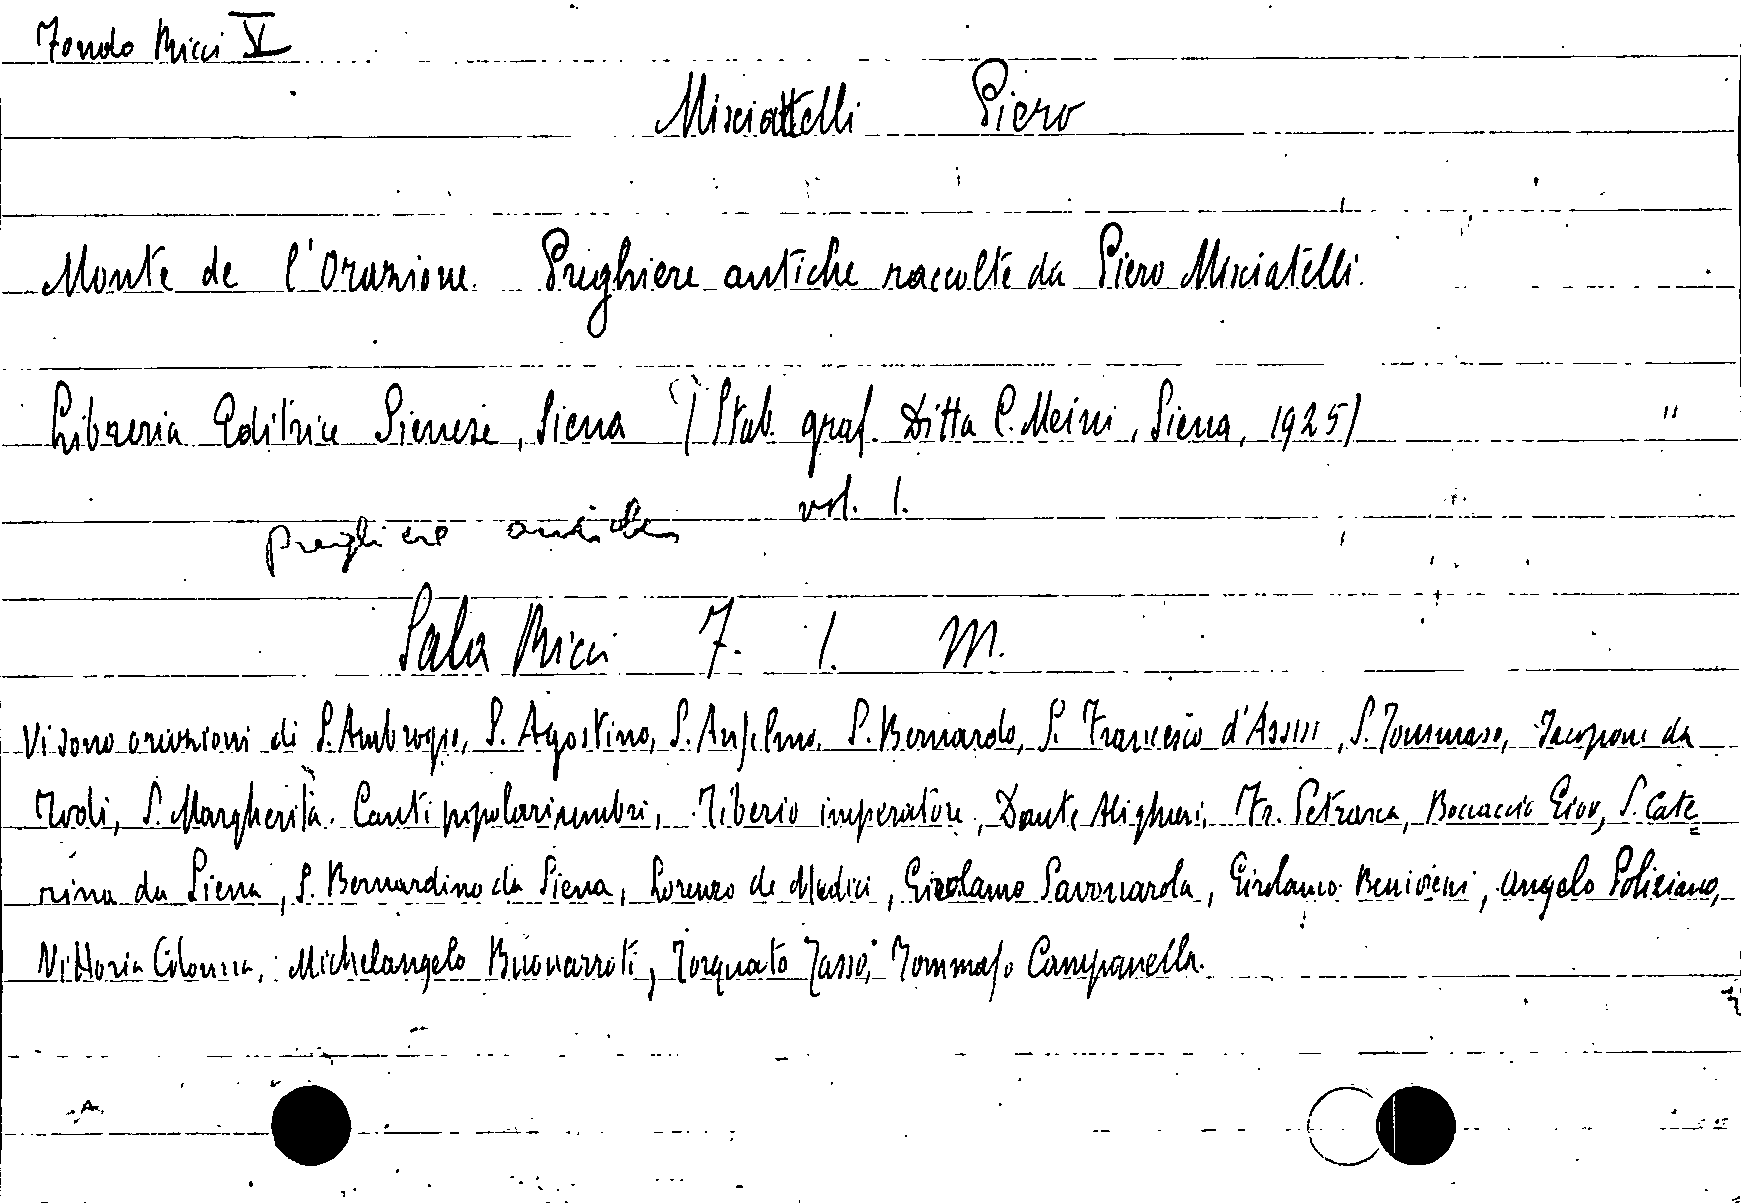 Fondo Ricci V
Misciattelli Piero
Monte de l'Orazione. Preghiere antiche raccolte da Piero Misciatelli.
Libreria Editrice Sienese, Siena (Stab. graf. Ditta C. Meini, Siena, 1925)
vol. 1.
preghiere antiche
Sala Ricci 7. 1. M.
Vi sono orazioni di S. Ambrogio, S. Agostino, S. Anselmo, S. Bernardo, S. Francesco d'Assisi, S. Tommaso, Jacopone da
Todi, S. Margherita. Canti popolari umbri, Tiberio imperatore, Dante Alighieri, Fr. Petrarca, Boccaccio Giov, S. Cate=
rina da Siena, S. Bernardino da Siena, Lorenzo de Medici, Girolamo Savonarola, Girolamo Benivieni, Angelo Poliziano,
Vittoria Colonna, Michelangelo Buonarroti, Torquato Tasso, Tommaso Campanella.